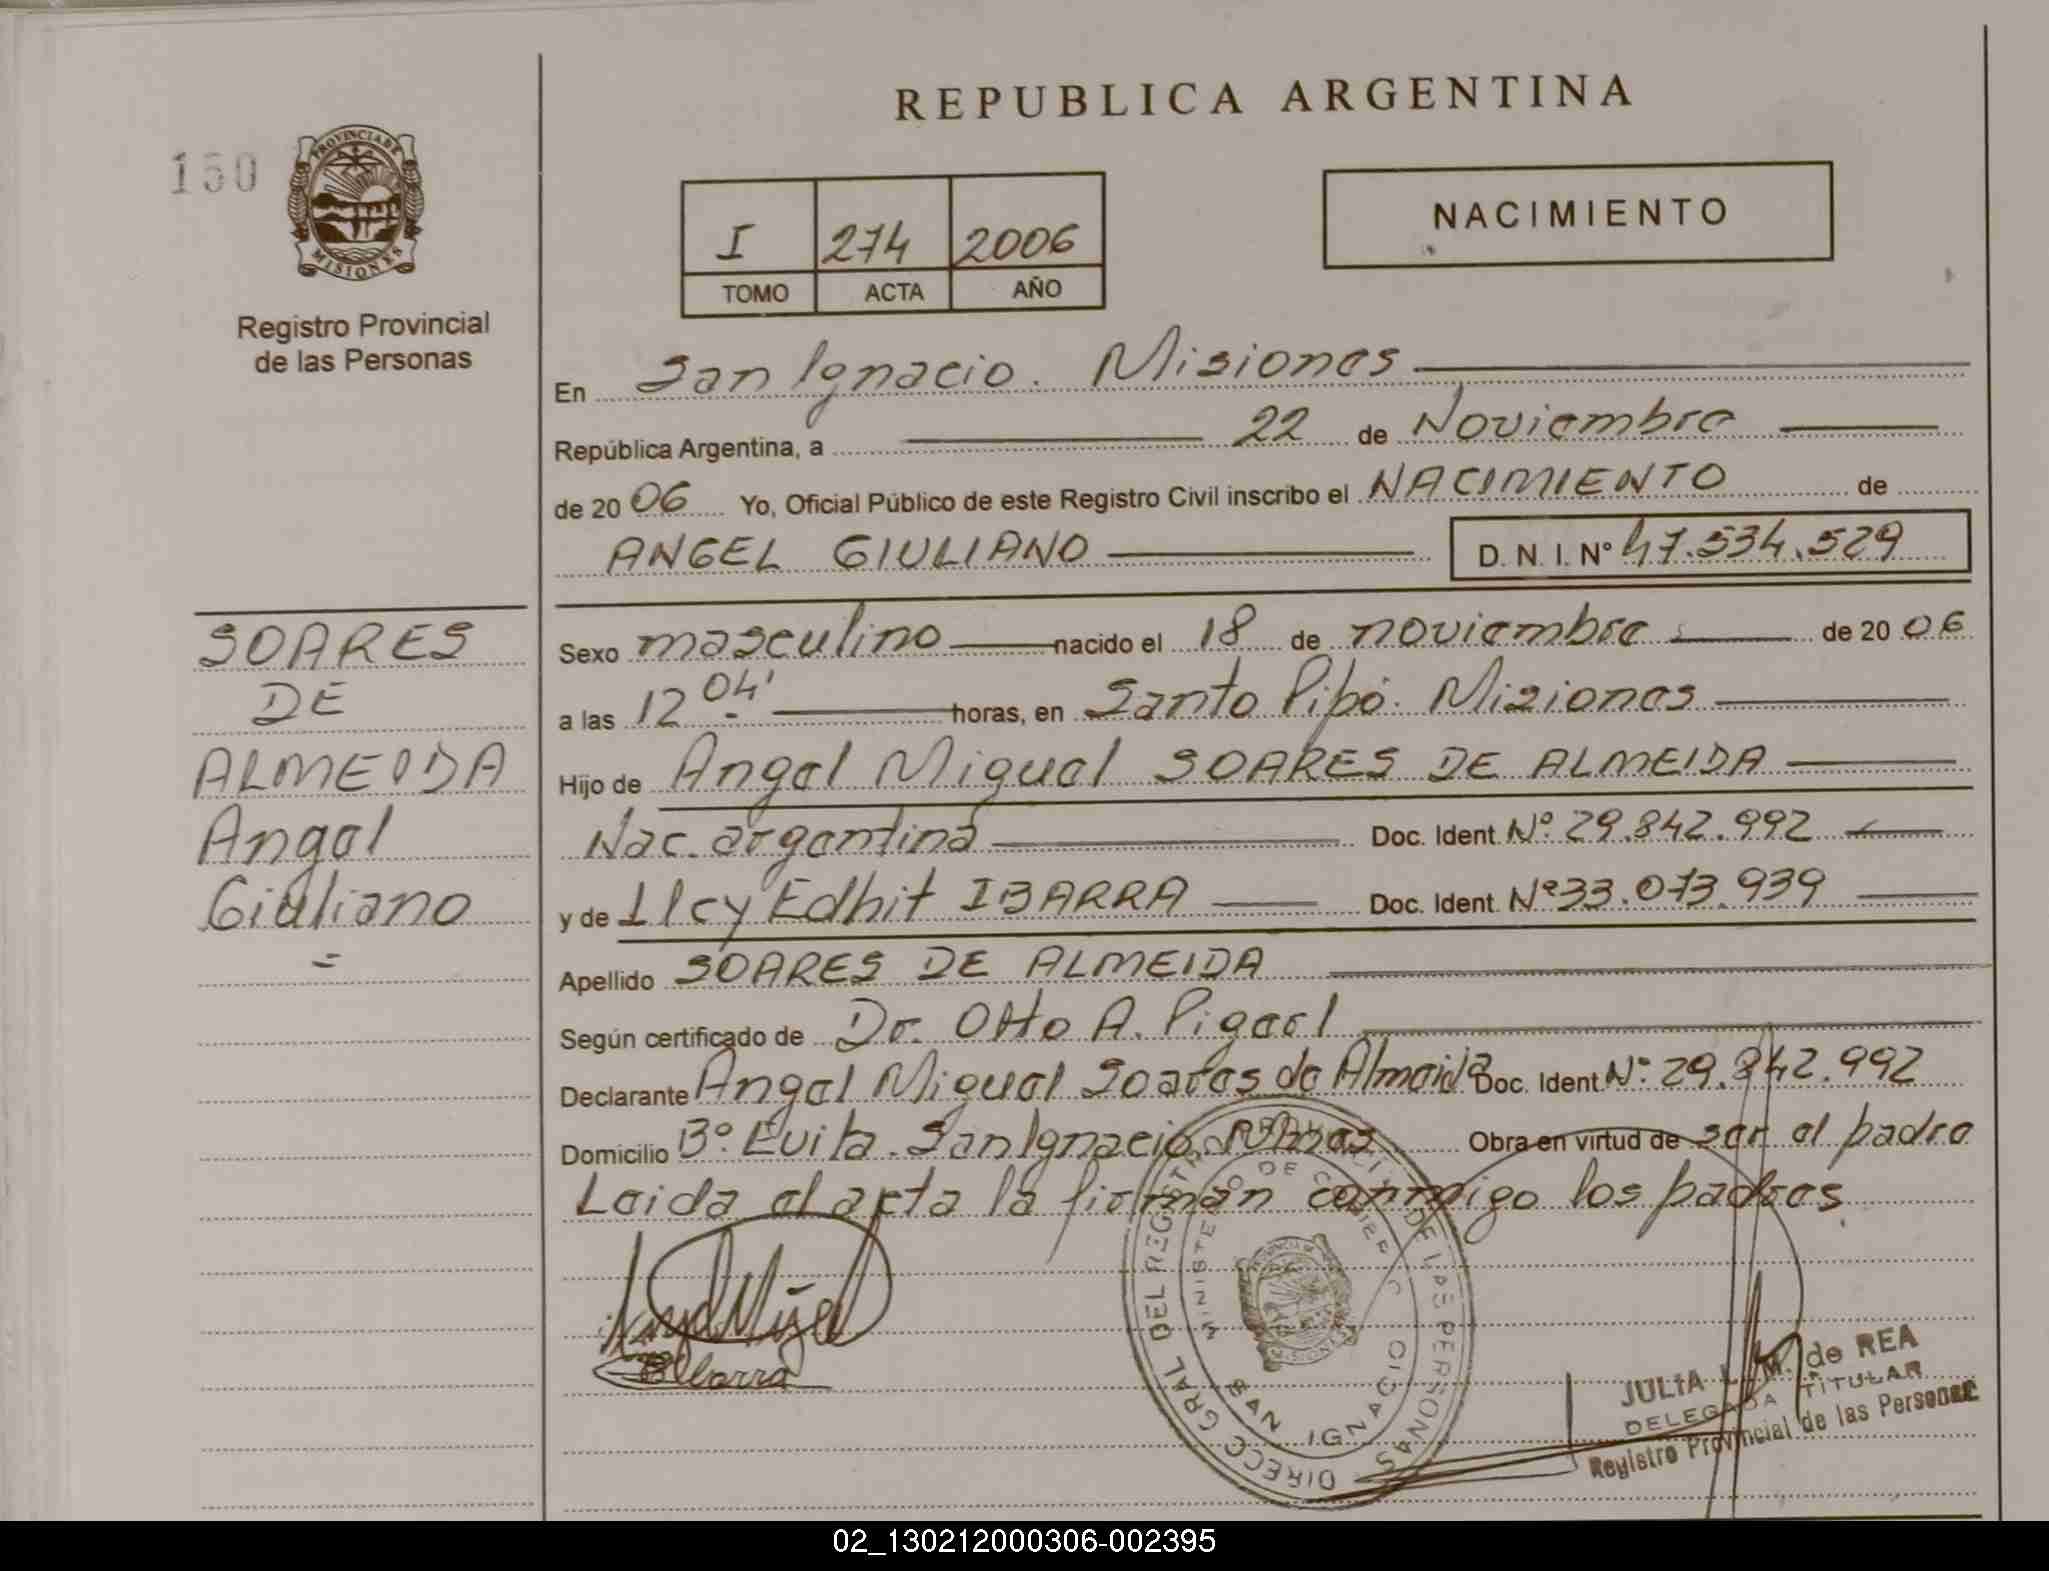 REPUBLICA ARGENTINA
150
PROVINCIA DE
MISIONES
Registro Provincial
de las Personas
I 274 2006
TOMO ACTA AÑO
NACIMIENTO
En San Ignacio. Misiones
República Argentina, a 22 de Noviembre
de 2006 Yo, Oficial Público de este Registro Civil inscribo el NACIMIENTO de
ANGEL GIULIANO D. N. I. N° 47.534.529
SOARES
DE
ALMEIDA
Angel
Giuliano
Sexo masculino nacido el 18 de noviembre de 2006
a las 12 04' horas, en Santo Pipó. Misiones
Hijo de Angel Miguel SOARES DE ALMEIDA
Nac. argentina Doc. Ident. N°. 29.842.992
y de Ilcy Edhit IBARRA Doc. Ident. N° 33.073.939
Apellido SOARES DE ALMEIDA
Según certificado de Dr. Otto A.
Declarante Angel Miguel Soares de Almeida Doc. Ident. N°. 29.842.992
Domicilio B° Evita. San Ignacio Mnes Obra en virtud de ser el padre
Leida el acta la firman conmigo los padres.
Angel Miguel
Ibarra
DIRECC GRAL DEL REGISTRO PROVINCIAL DE LAS PERSONAS
MINISTERIO DE GOBIERNO
SAN IGNACIO
MISIONES
JULIA L. M. de REA
DELEGADA TITULAR
Registro Provincial de las Personas
02_130212000306-002395